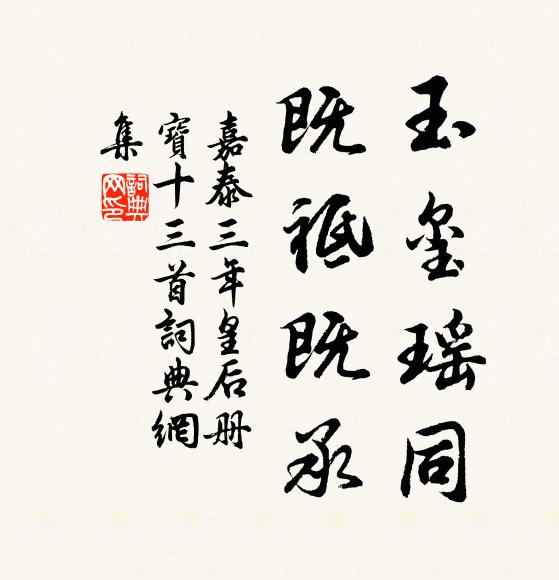 玉玺瑶同
既祗既承
嘉泰三年皇后册
寶十三首詞典網
集
詞典
网印